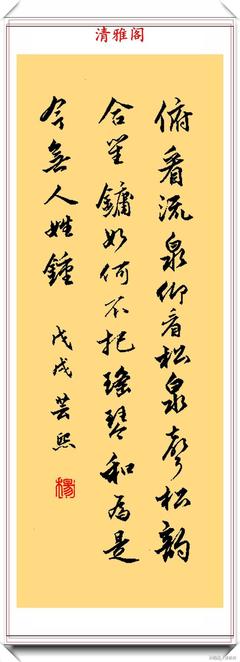 清雅阁
俯看流泉仰看松泉声松韵
合笙镛如何不把瑶琴和为是
今無人姓鍾
戊戌芸熙
楊